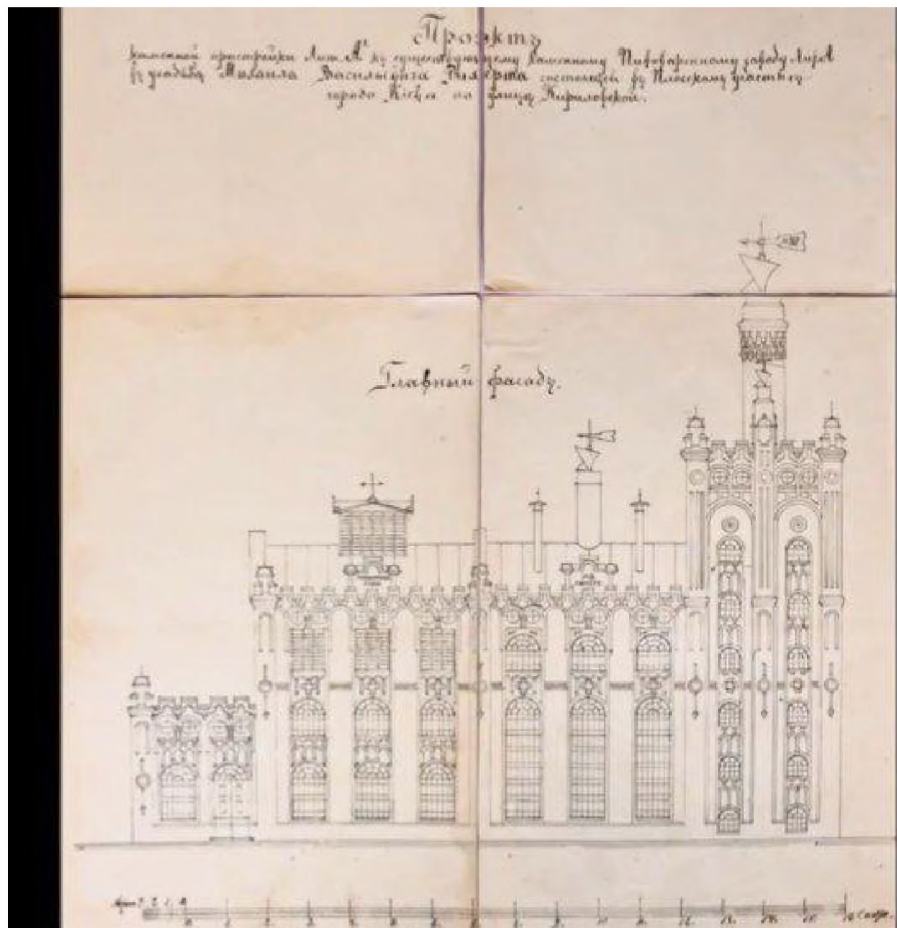 Проэктъ
каменной пристройки Лит. А' къ существующему каменному Пивоваренному заводу Лит. А
въ усадьбѣ Михаила Васильевича Рихерта состоящей въ Плоскомъ участкѣ
города Кіева по улицѣ Кириловской.
Главный фасадъ.
Арш. 3 2 1 0 1. 2. 3. 4. 5. 6. 7. 8. 9. 10. 11. 12. 13. 14. 15. 16 Саж.